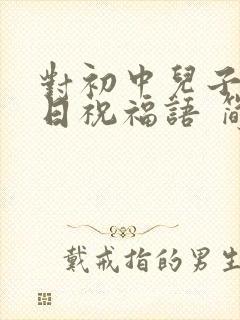 對初中兒子
日祝福語 簡
戴戒指的男生